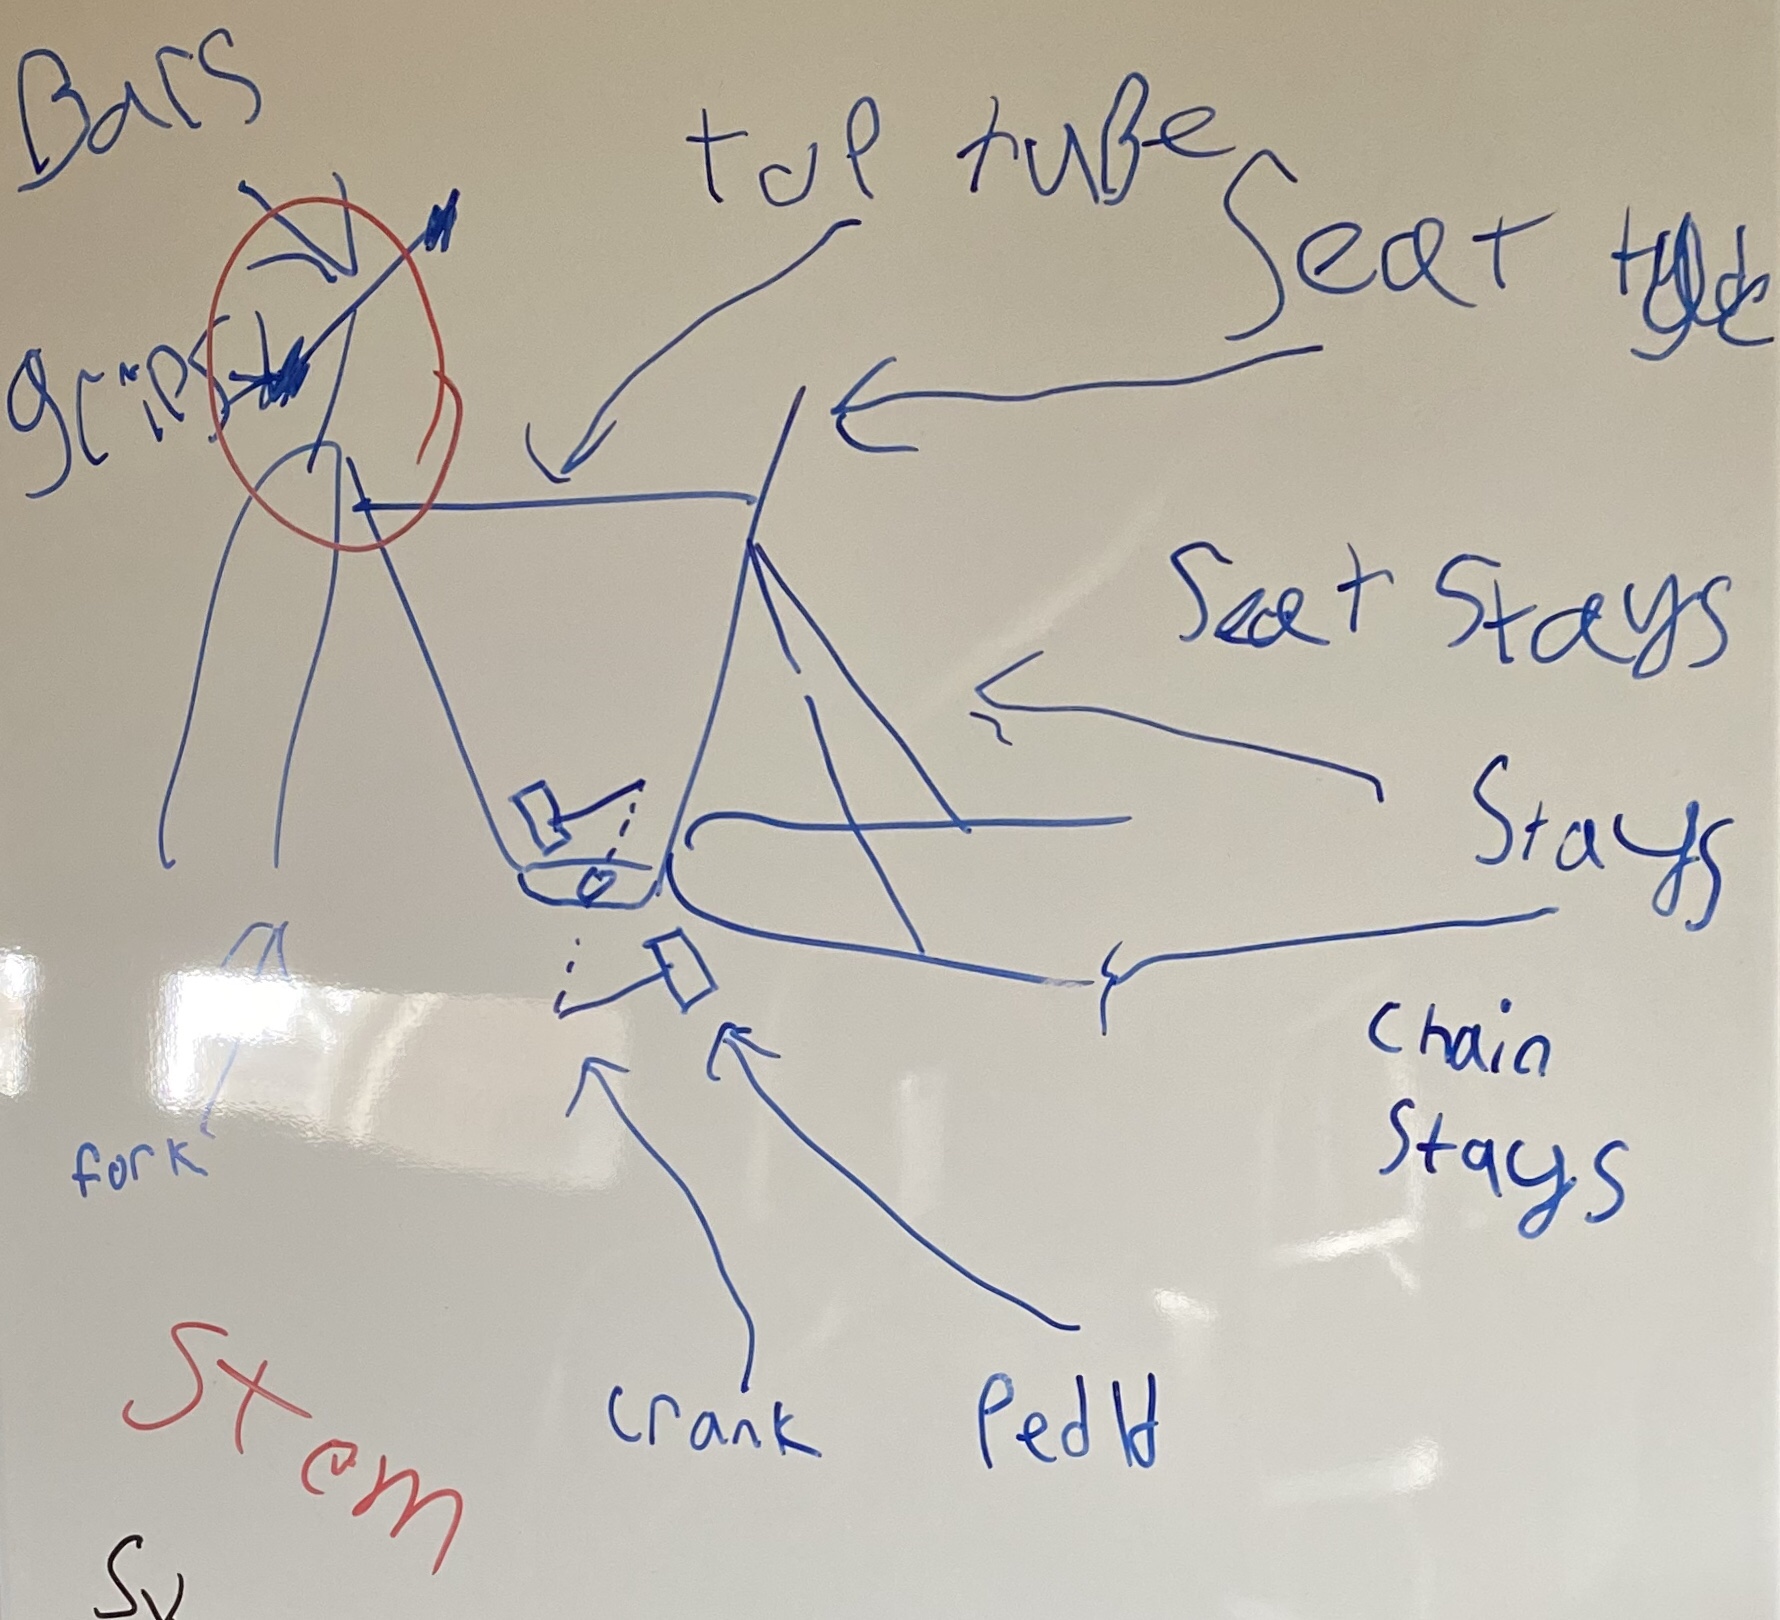 Bars
top tuBe
Seat tube
grips
Seat Stays
Stays
Chain
Stays
fork
crank
Pedal
Stem